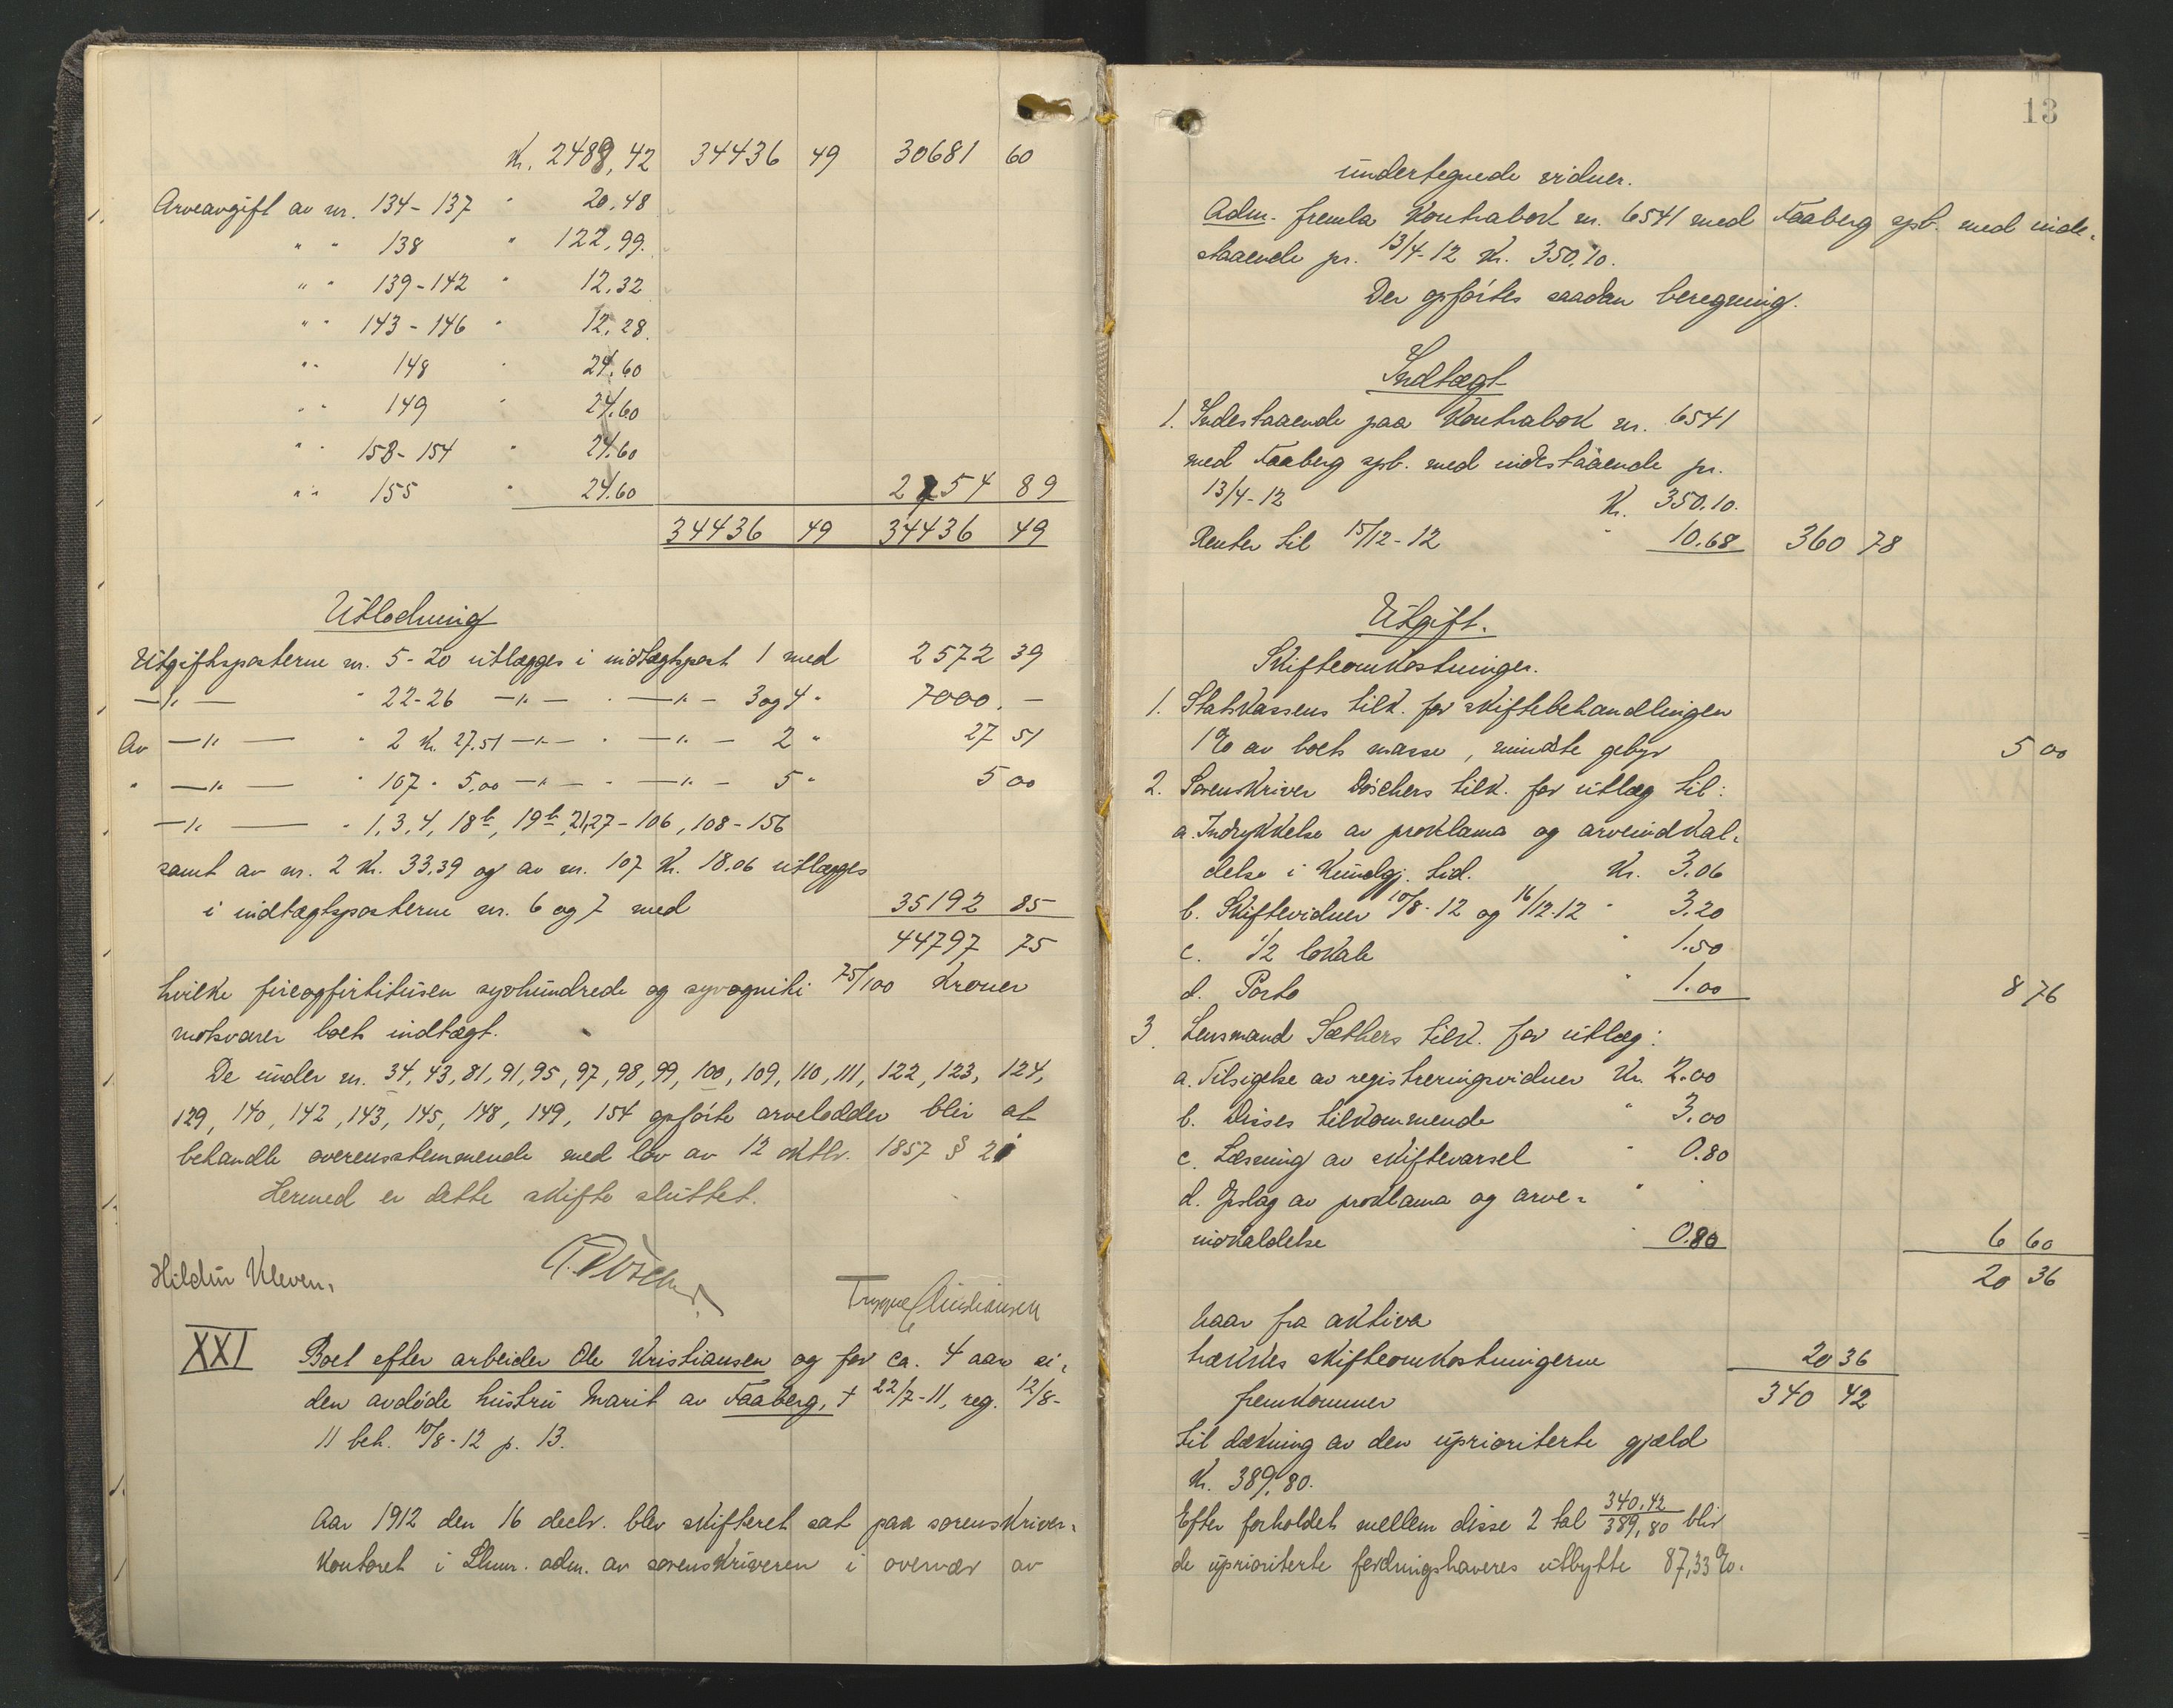 Kr. 2488,42 34436 49 30681 60
Arveavgift av nr. 134-137 " 20,48
" " 138 " 122,99.
" " 139-142 " 12,32
" " 143-146 " 12,28.
" " 148 " 24,60
" " 149 " 24,60
" " 153-154 " 24,60
" " 155 " 24,60 2754 89
34436 49 34436 49
Utlodning
Utgiftsposterne nr. 5-20 utlægges i indtægtspost 1 med 2572 39
—"— " 22-26 —"— " —"— 3 og 4 " 7000. —
Av —"— " 2 Kr. 27,51 —"— " —"— 2 " 27 51
" —"— " 107 " 5,00 —"— " —"— 5 " 5 00
—"— " 1, 3, 4, 18b, 19b, 21, 27-106, 108-156
samt av nr. 2 Kr. 33,39 og av nr. 107 Kr. 18.06 utlægges
i indtægtsposterne nr. 6 og 7 med 35192 85
44797 75
hvilke fireogfirtitusen syvhundrede og syvogniti 75/100 kroner
motsvarer boets indtægt.
De under nr. 34, 43, 81, 91, 95, 97, 98, 99, 100, 109, 110, 111, 122, 123, 124,
129, 140, 142, 143, 145, 148, 149, 154 opførte arvelodder blir at
behandle overensstemmende med lov av 12 oktbr. 1857 § 2
Hermed er dette skifte sluttet.
Hildur Kleven. Trygve Christiansen
XXI Boet efter arbeider Ole Kristiansen og for ca. 4 aar si-
den avdøde hustru Marit av Faaberg, † 22/7-11, reg. 12/8-
11 beh. 10/8-12 p. 13.
Aar 1912 den 16 decbr. blev skifteret sat paa sorenskriver-
kontoret i Lhmr. adm. av sorenskriveren i overvær av
13
undertegnede vidner.
Adm. fremla kontrabok nr. 6541 med Faaberg spb. med inde-
staaende pr. 13/4-12 Kr. 350,10.
Der opførtes saadan beregning.
Indtægt
1. Indestaaende paa kontrabok nr. 6541
med Faaberg spb. med indestaaende pr.
13/4-12 Kr. 350.10.
Renter til 15/12-12 " 10.68 360 78
Utgift.
Skifteomkostninger.
1. Statskassens tilk. for skiftebehandlingen
1% av boets masse, mindste gebyr 5 00
2. Sorenskriver Döschers tilk. for utlæg til:
a. Indrykkelse av proklama og arveindkal-
delse i Kundgj. tid. Kr. 3.06
b. Skiftevidner 10/8-12 og 16/12-12 " 3.20
c. 1/2 lokale " 1.50
d. Porto " 1.00 8 76
3. Lensmand Sæthers tilk. for utlæg:
a. Tilsigelse av registreringsvidner Kr. 2.00
b. Disses tilkommende " 3.00
c. Læsning av skiftevarsel " 0.80
d. Opslag av proklama og arve- "
indkaldelse " 0.80 6 60
20 36
Naar fra aktiva
trækkes skifteomkostningerne 20 36
fremkommer 340 42
til dækning av den uprioriterte gjæld
Kr. 389,80.
Efter forholdet mellem disse 2 tal 340,42/389,80 blir
de uprioriterte fordringshaveres utbytte 87,33%.